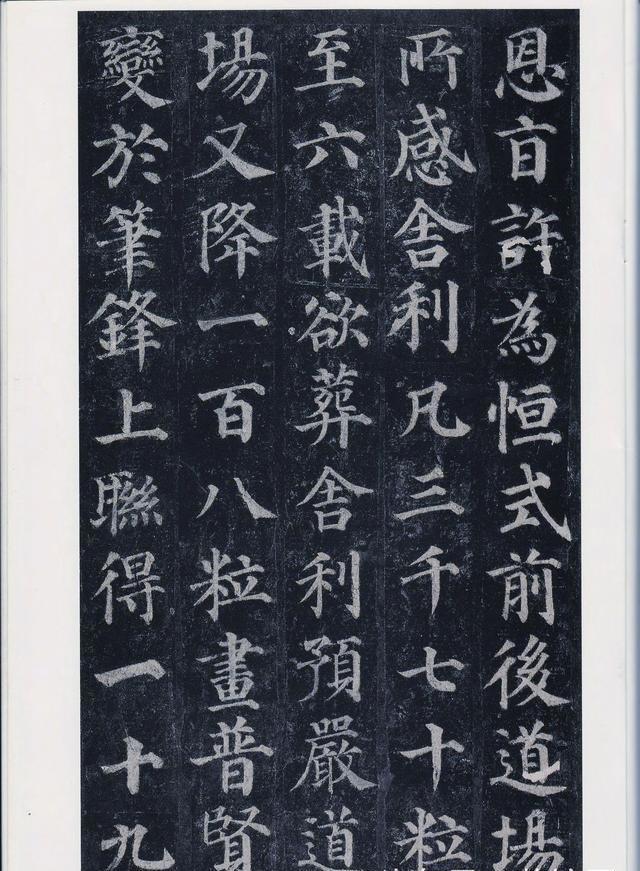 恩旨許為恒式前後道場
所感舍利凡三千七十粒
至六載欲葬舍利預嚴道
場又降一百八粒畫普賢
變於筆鋒上聯得一十九